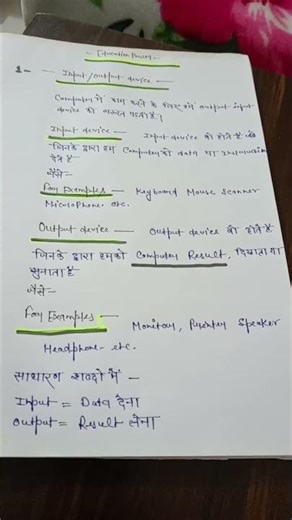 Education Point
1- Input/output device
Computer में काम करने के लिए हमें output input
device की जरूरत पड़ती है।
Input device — Input device वो होते हैं
जिनके द्वारा हम Computer को data या Instruction
देते हैं
जैसे-
For Examples — Keyboard Mouse Scanner
Microphone. etc.
Output device — Output device वो होते हैं
जिनके द्वारा हमको Computer Result, दिखाता या
सुनाता है
जैसे-
For Examples — Monitor, Printer Speaker
Headphone- etc.
साधारण शब्दों में —
Input = Data देना
Output = Result लेना